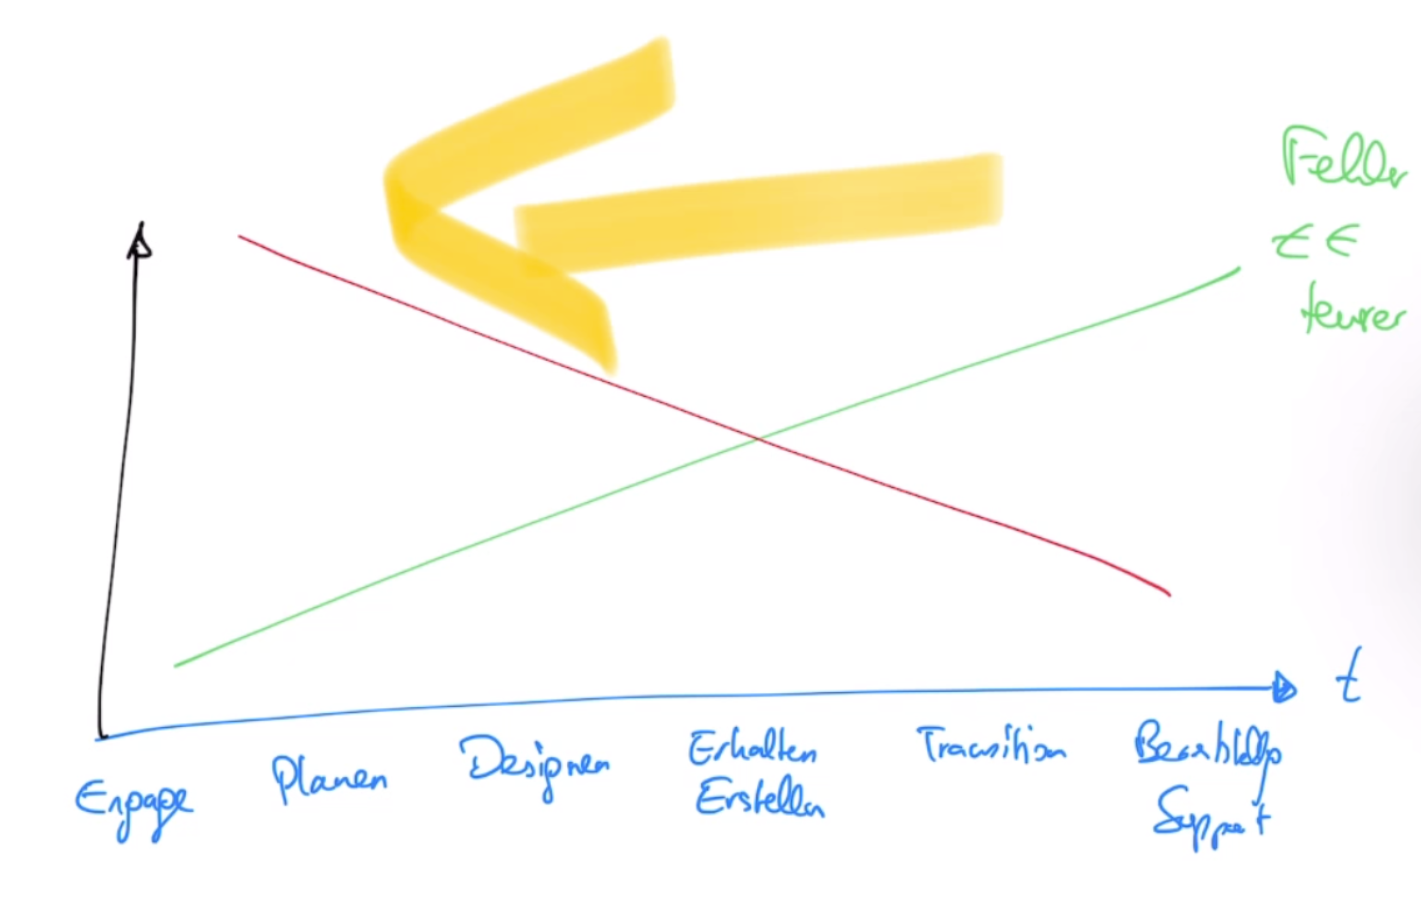 Fehler
€€
teurer
t
Engage
Planen
Designen
Erhalten
Erstellen
Transition
Support